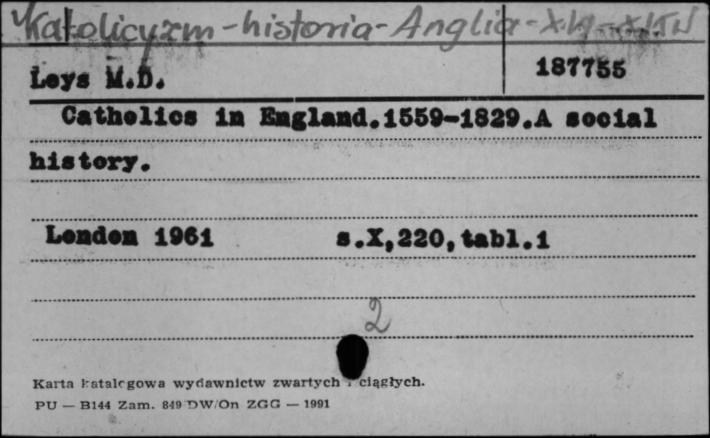 Katolicyzm - historia - Anglia - XVI-XIX W
Leys M.D.
187755
Catholics in England.1559-1829.A social
history.
London 1961 s.X,220,tabl.1
2
Karta katalogowa wydawnictw zwartych i ciągłych.
PU — B144 Zam. 849 DW/On ZGG — 1991